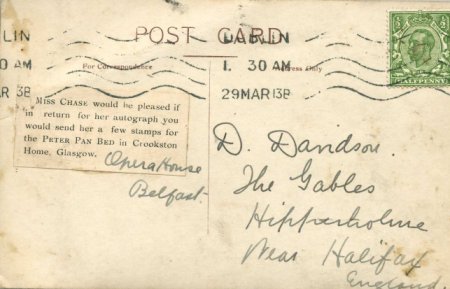 POST CARD
LIN
DUBLIN
30 AM
1. 30 AM
AR 13B
29 MAR 13B
For Correspondence
Address Only
HALFPENNY
MISS CHASE would be pleased if
in return for her autograph you
would send her a few stamps for
the PETER PAN BED in Crookston
Home, Glasgow.
Opera House
Belfast.
D. Davidson.
The Gables
Hipperholme
Near Halifax
England.